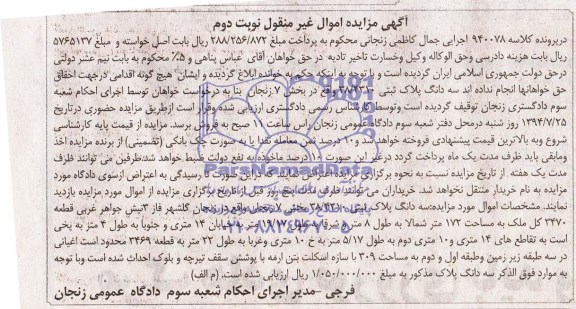 آگهی مزایده اموال غیر منقول نوبت دوم
درپرونده کلاسه ۹۴۰۰۷۸ اجرایی جمال کاظمی زنجانی محکوم به پرداخت مبلغ ۲۸۸/۲۵۶/۸۷۲ ریال بابت اصل خواسته و مبلغ ۵۷۶۵۱۳۷
ریال بابت هزینه دادرسی وحق الوکاله وکیل وخسارت تاخیر تادیه در حق خواهان آقای عباس پناهی و ۵٪ محکوم به بابت نیم عشر دولتی
درحق دولت جمهوری اسلامی ایران گردیده است و با توجه به اینکه محکوم به خوانده ابلاغ گردیده و ایشان هیچ گونه اقدامی درجهت احقاق
حق خواهانها انجام نداده اند سه دانگ پلاک ثبتی واقع در بخش ۷ زنجان بنا به درخواست خواهان توسط اجرای احکام شعبه
سوم دادگستری زنجان توقیف گردیده است وتوسط کارشناس رسمی دادگستری ارزیابی شده وقرار است ازطریق مزایده حضوری درتاریخ
۱۳۹۴/۷/۲۵ روز شنبه درمحل دفتر شعبه سوم دادگاه عمومی زنجان راس ساعت ۱۰ صبح به فروش برسد. مزایده از قیمت پایه کارشناسی
شروع وبه بالاترین قیمت پیشنهادی فروخته خواهد شد و ۱۰ درصد ثمن معامله نقدا یا به صورت چک بانکی (تضمینی) از برنده مزایده اخذ
ومابقی باید ظرف مدت یک ماه پرداخت گردد درغیر این صورت ۱۰ درصد ماخوذه به نفع دولت ضبط خواهد شد طرفین می توانند ظرف
مدت یک هفته از تاریخ مزایده نسبت به نحوه برگزاری مزایده اعتراض نمایند رسیدگی به اعتراض ازسوی دادگاه مورد
مزایده به نام خریدار منتقل نخواهد شد. خریداران می توانند ظرف مدت پنج روز قبل از تاریخ برگزاری مزایده از اموال مورد مزایده بازدید
نمایند. مشخصات اموال مورد مزایده:سه دانگ پلاک ثبتی بخش ۷ زنجان واقع در زنجان گلشهر فاز ۳ نبش جواهر غربی قطعه
۳۴۷۰ کل ملک به مساحت ۱۷۲ متر شمالا به طول ۸ متر و شرقا بطول ۱۹/۱۷ متر به خیابان ۱۴ متری و جنوبا به طول ۴ متر به پخی
است به تقاطع های ۱۴ متری و ۱۰ متری دوم به طول ۵/۱۷ به خ ۱۰ متری و غربا به طول ۲۲ متر به قطعه ۳۴۶۹ محدود است اعیانی
در سه طبقه زیر زمین وطبقه اول و دوم به مساحت ۳۰۹ با سازه اسکلت بتن ارمه با پوشش سقف تیرچه و بلوک احداث شده است وبا توجه
به موارد فوق الذکر سه دانگ پلاک مذکور به مبلغ ۱/۰۵۰/۰۰۰/۰۰۰ ریال ارزیابی شده است. (م الف)
فرجی -مدیر اجرای احکام شعبه سوم دادگاه عمومی زنجان